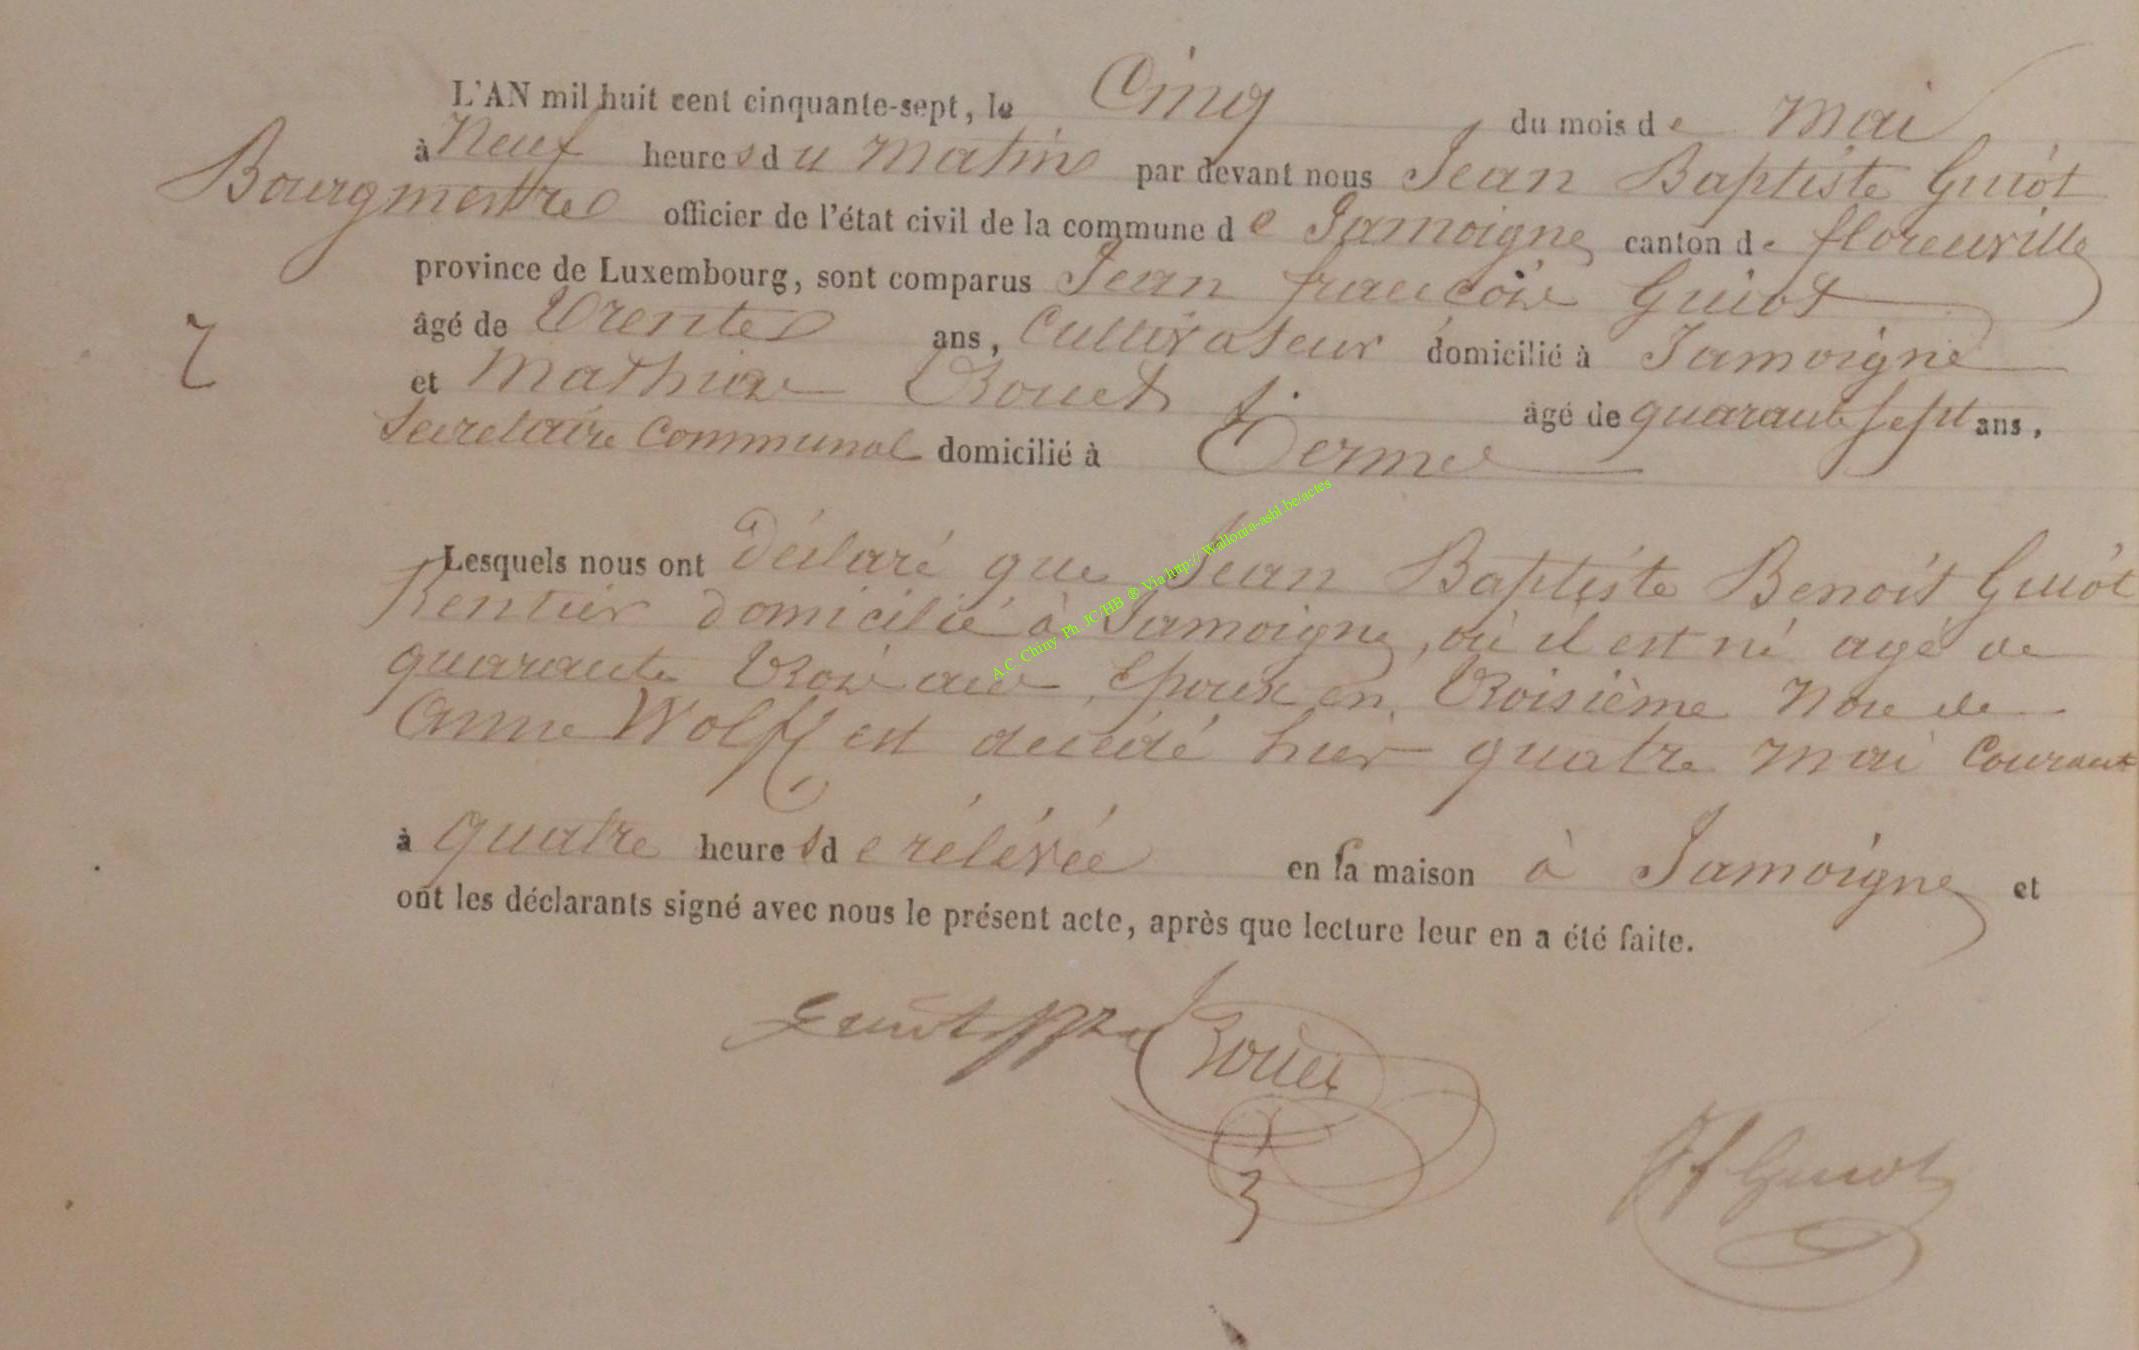 L'AN mil huit cent cinquante-sept, le Cinq du mois de Mai
à Neuf heures du Matin par devant nous Jean Baptiste Guiot
Bourgmestre officier de l'état civil de la commune de Jamoigne canton de florenville
province de Luxembourg, sont comparus Jean françois Guiot
âgé de Trente ans, Cultivateur domicilié à Jamoigne
7
et Mathieu Rouet âgé de quarante sept ans,
Secretaire Communal domicilié à Termes
Lesquels nous ont déclaré que Jean Baptiste Benoit Guiot
Rentier domicilié à Jamoigne, où il est né agé de
quarante trois ans, Epoux en Troisième Noce de
Anne Wolff est decédé hier quatre Mai Courant
A.C. Chiny Ph. JC/HB ® Via http://Wallonia-asbl.be/actes
à quatre heures de rélévée en sa maison à Jamoigne et
ont les déclarants signé avec nous le présent acte, après que lecture leur en a été faite.
Guiot Rouet
Jf Guiot